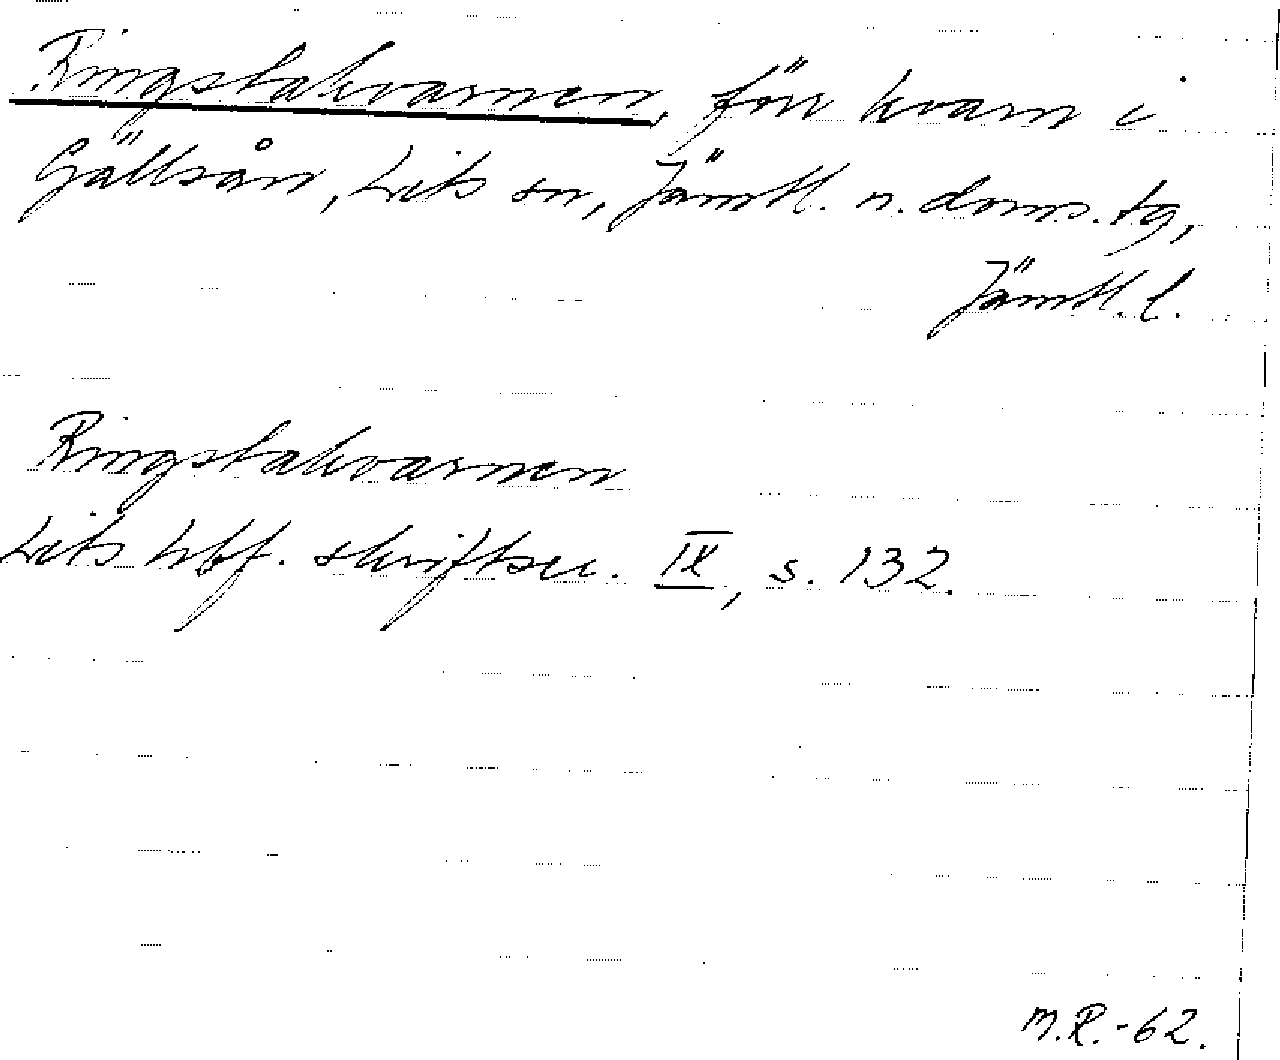 Ringstakvarnen, förr kvarn i
Gällsån, Lits sn, Jämtl. n. doms. tg,
Jämtl. l.
Ringstakvarnen
Lits hbf. skriftser. IX, s. 132.
M.R.-62.